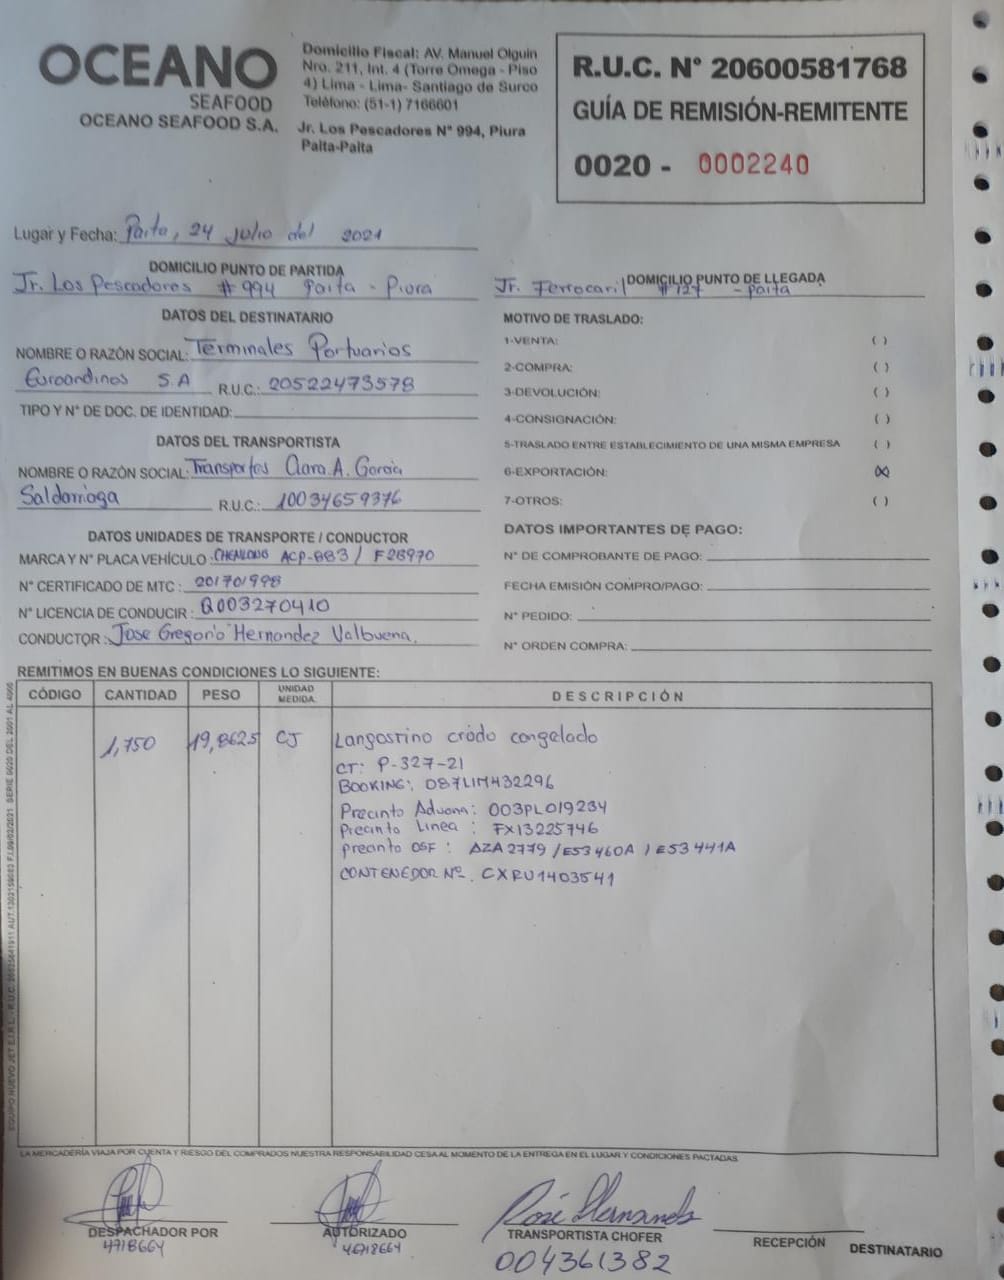 OCEANO
SEAFOOD
OCEANO SEAFOOD S.A.
Domicilio Fiscal: AV. Manuel Olguin
Nro. 211, Int. 4 (Torre Omega - Piso
4) Lima - Lima- Santiago de Surco
Teléfono: (51-1) 7166601
Jr. Los Pescadores N° 994, Piura
Paita-Paita
R.U.C. N° 20600581768
GUÍA DE REMISIÓN-REMITENTE
0020 - 0002240
Lugar y Fecha: Paita, 24 Julio del 2021
DOMICILIO PUNTO DE PARTIDA
Jr. Los Pescadores #994 Paita - Piura
DOMICILIO PUNTO DE LLEGADA
Jr. Ferrocaril #127 - Paita
DATOS DEL DESTINATARIO
NOMBRE O RAZÓN SOCIAL: Terminales Portuarios
Euroandinos S.A R.U.C.: 20522473578
TIPO Y N° DE DOC. DE IDENTIDAD:
DATOS DEL TRANSPORTISTA
NOMBRE O RAZÓN SOCIAL: Transportes Clara A. Garcia
Saldarriaga R.U.C.: 10034659376
DATOS UNIDADES DE TRANSPORTE / CONDUCTOR
MARCA Y N° PLACA VEHÍCULO: CHENLONG ACP-883 / F2B970
N° CERTIFICADO DE MTC: 201701998
N° LICENCIA DE CONDUCIR: Q003270410
CONDUCTOR: Jose Gregorio Hernandez Valbuena.
MOTIVO DE TRASLADO:
1-VENTA: ( )
2-COMPRA: ( )
3-DEVOLUCIÓN: ( )
4-CONSIGNACIÓN: ( )
5-TRASLADO ENTRE ESTABLECIMIENTO DE UNA MISMA EMPRESA ( )
6-EXPORTACIÓN: (X)
7-OTROS: ( )
DATOS IMPORTANTES DE PAGO:
N° DE COMPROBANTE DE PAGO:
FECHA EMISIÓN COMPRO/PAGO:
N° PEDIDO:
N° ORDEN COMPRA:
REMITIMOS EN BUENAS CONDICIONES LO SIGUIENTE:
CÓDIGO CANTIDAD PESO UNIDAD MEDIDA. DESCRIPCIÓN
1,750 19,8625 CJ Langostino crudo congelado
CT: P-327-21
BOOKING: 087LIM432296
Precinto Aduana: 003PL019234
Precinto Linea: FX13225746
precinto OSF: AZA2779 / E53460A / E53441A
CONTENEDOR N°. CXRU1403541
LA MERCADERÍA VIAJA POR CUENTA Y RIESGO DEL COMPRADOS NUESTRA RESPONSABILIDAD CESA AL MOMENTO DE LA ENTREGA EN EL LUGAR Y CONDICIONES PACTADAS.
DESPACHADOR POR
4718664
AUTORIZADO
46718664
José Hernandez
TRANSPORTISTA CHOFER
004361382
RECEPCIÓN DESTINATARIO